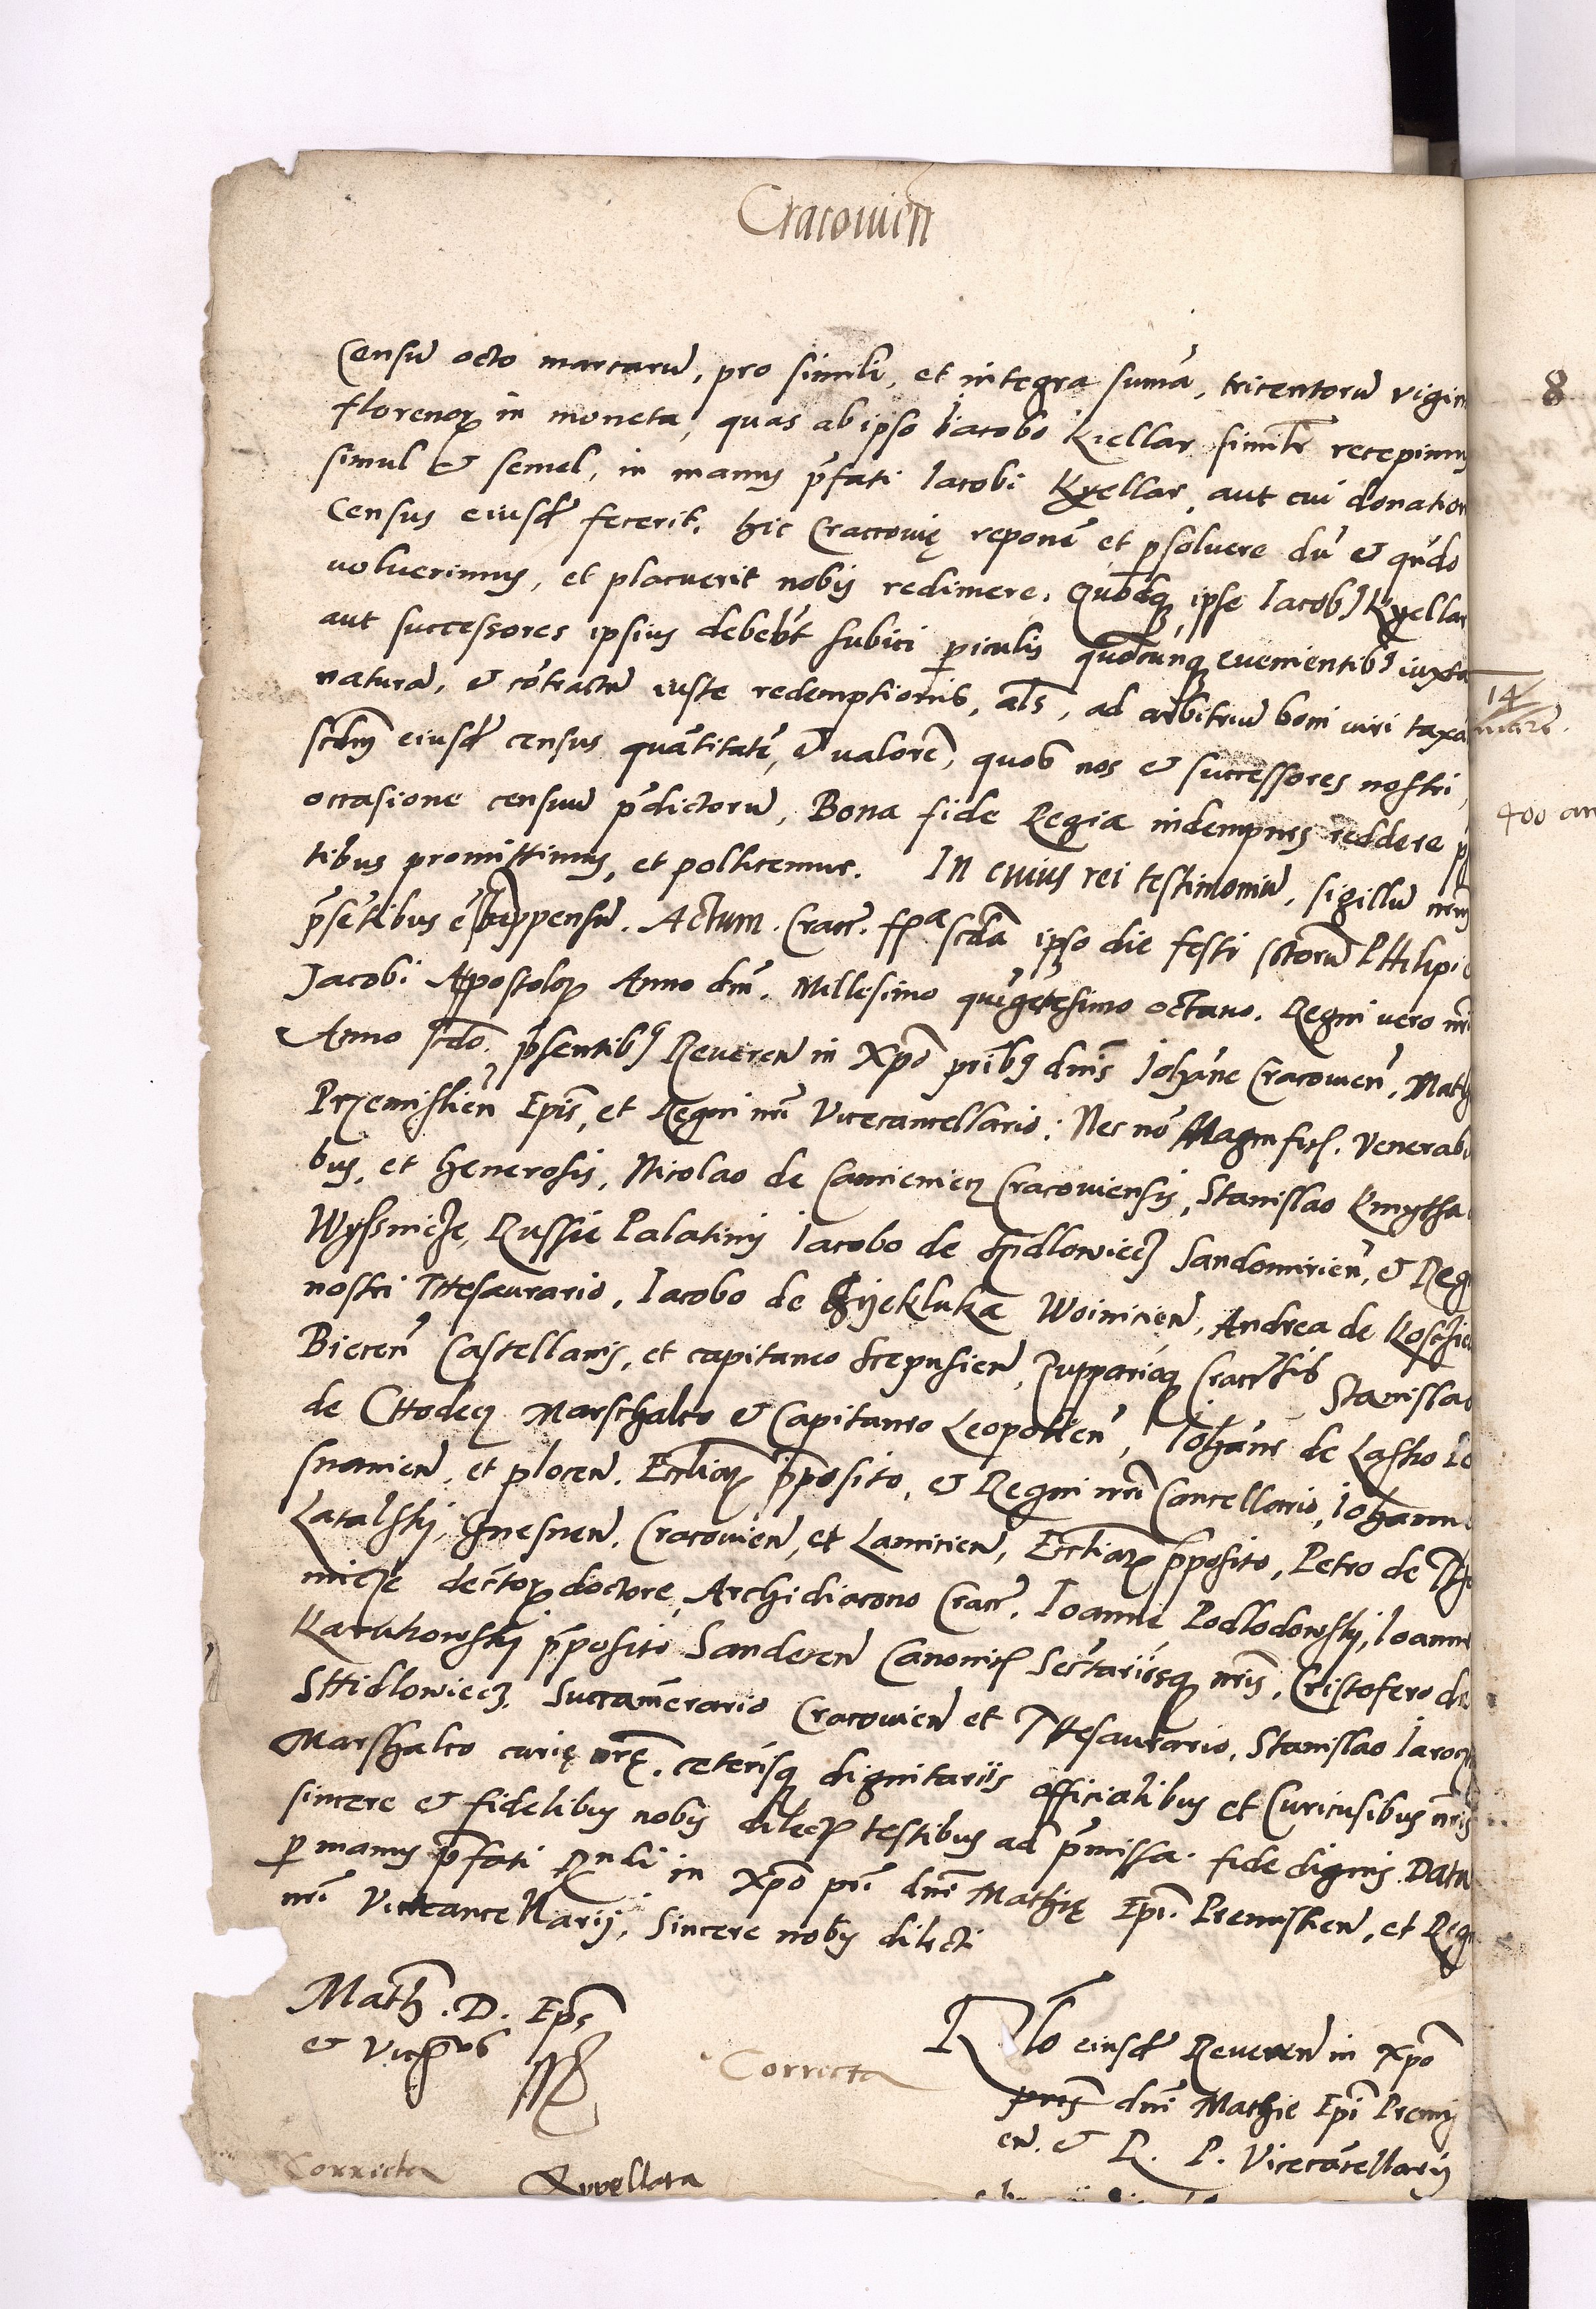 Cracouień
Censū octo marcarū, pro simili, et integra sumā, tricentorū vigin
florenoꝝ in moneta, quas ab ipso Iacobo Kiellar simlr recepimus
simul & semel, in manus p̄fati Iacobi Kyellar, aut cui donation
Census eiusdē fecerit. hic Craccouię reponē et ꝑsoluere dū & qn̄do
voluerimus, et placuerit nobis redimere. Quodq̨ ipse Iacobꝯ Kyellar
aut successores ipsius debebūt subici ꝑiculis quōcunq̨ euenientibꝯ iuxta
naturā, & cōtractū iuste redemptionis, als̄, ad arbitriū boni viri taxā
scdm̄ eiusdē census quātitatē, & valorē, quos nos & successores nostri,
occasione censuū p̄dictorū, Bona fide Regia indempnes reddere p̄
tibus promittimus, et pollicemur. In cuius rei testimoniū, sigillū nrm̄
p̄sētibus ē subappensū. Actum. Cracc. fr̄ia scd̄a ipso die festi sctorū Philipi &
Jacobi Appostoloꝝ Anno dn̄i. Millesimo quīgētesimo octauo. Regni vero nr̄i
Anno scdo. p̄sentibꝯ Reueren̄ in Xp̄o pr̄ibꝯ dn̄is Iohāne Cracouien̄, Math
Przemislien̄ Ep̄is, et Regni nr̄i Vicecancellario: Nec nō Magnificis. Venerabi
bus, et Generosis, Nicolao de Camieniecz Cracouiensis, Stanislao Kmytha
Wyssnicze, Russie Palatinis Iacobo de Schidlowiecz Sandomirien̄, & Reg
nostri Thesaurario, Iacobo de Szijekluka Woinicien̄, Andrea de Koschie
Biecen̄ Castellanis, et capitaneo Scepusien̄, Zupparioq̨ Craccsis Stanislao
de Chodecz Marschalco & Capitaneo Leopolien̄, Iohāne de Lasko Po
snanien̄, et plocen̄. Ecclīaꝝ p̄posito, & Regni nr̄i Cancellario, Iohanne
Latalskij, Gnesnen̄. Cracouien̄, et Lancicien̄, Ecclīaꝝ p̄posito, Petro de Tho
micze decrētoꝝ doctore, Archidiacono Cracc. Ioanne Podlodowskij, Ioanne
Karnkowskij p̄posito Sanderen̄ Canonicis Sectariisq̨ nr̄is, Cristofero de
Sthidlowiecz, Succamerario Cracouien̄ et Thesaurario, Stanislao Iarocz
Marschalco curię nrę. ceterisq̨ dignitariis officialibus et Curiensibus nr̄is
sincere & fidelibus nobis dilectis testibus ad p̄missa. fide dignis. Datū
ꝑ manus p̄fati Rn̄di in Xp̄o pr̄i dn̄i Mathię Ep̄i. Premislien̄, et Reg
nr̄i Vicecancellarij, Sincere nobis dilecti
Math. D. Ep̄s
& Vicēgs
Correcta
Rlō eiusdē Reueren̄ in Xp̄o
pr̄is dn̄i Mathie Ep̄i Premis
en̄. & R. P. Vicecācellarij
Correcta
Appellata
8
14
marc.
400